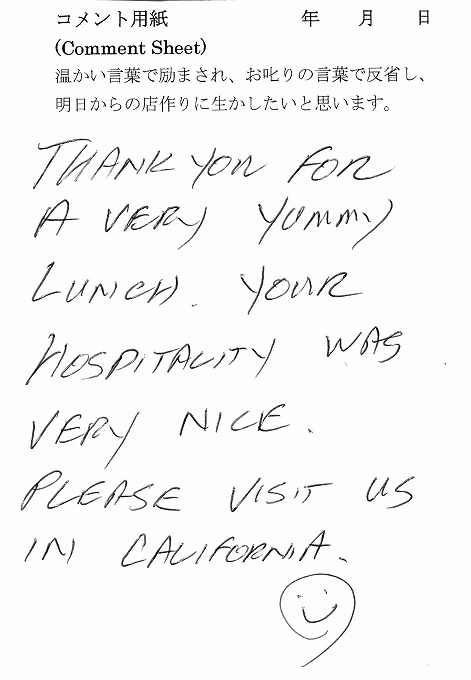 コメント用紙 年 月 日
(Comment Sheet)
温かい言葉で励まされ、お叱りの言葉で反省し、
明日からの店作りに生かしたいと思います。
THANK YOU FOR
A VERY YUMMY
LUNCH. YOUR
HOSPITALITY WAS
VERY NICE.
PLEASE VISIT US
IN CALIFORNIA.